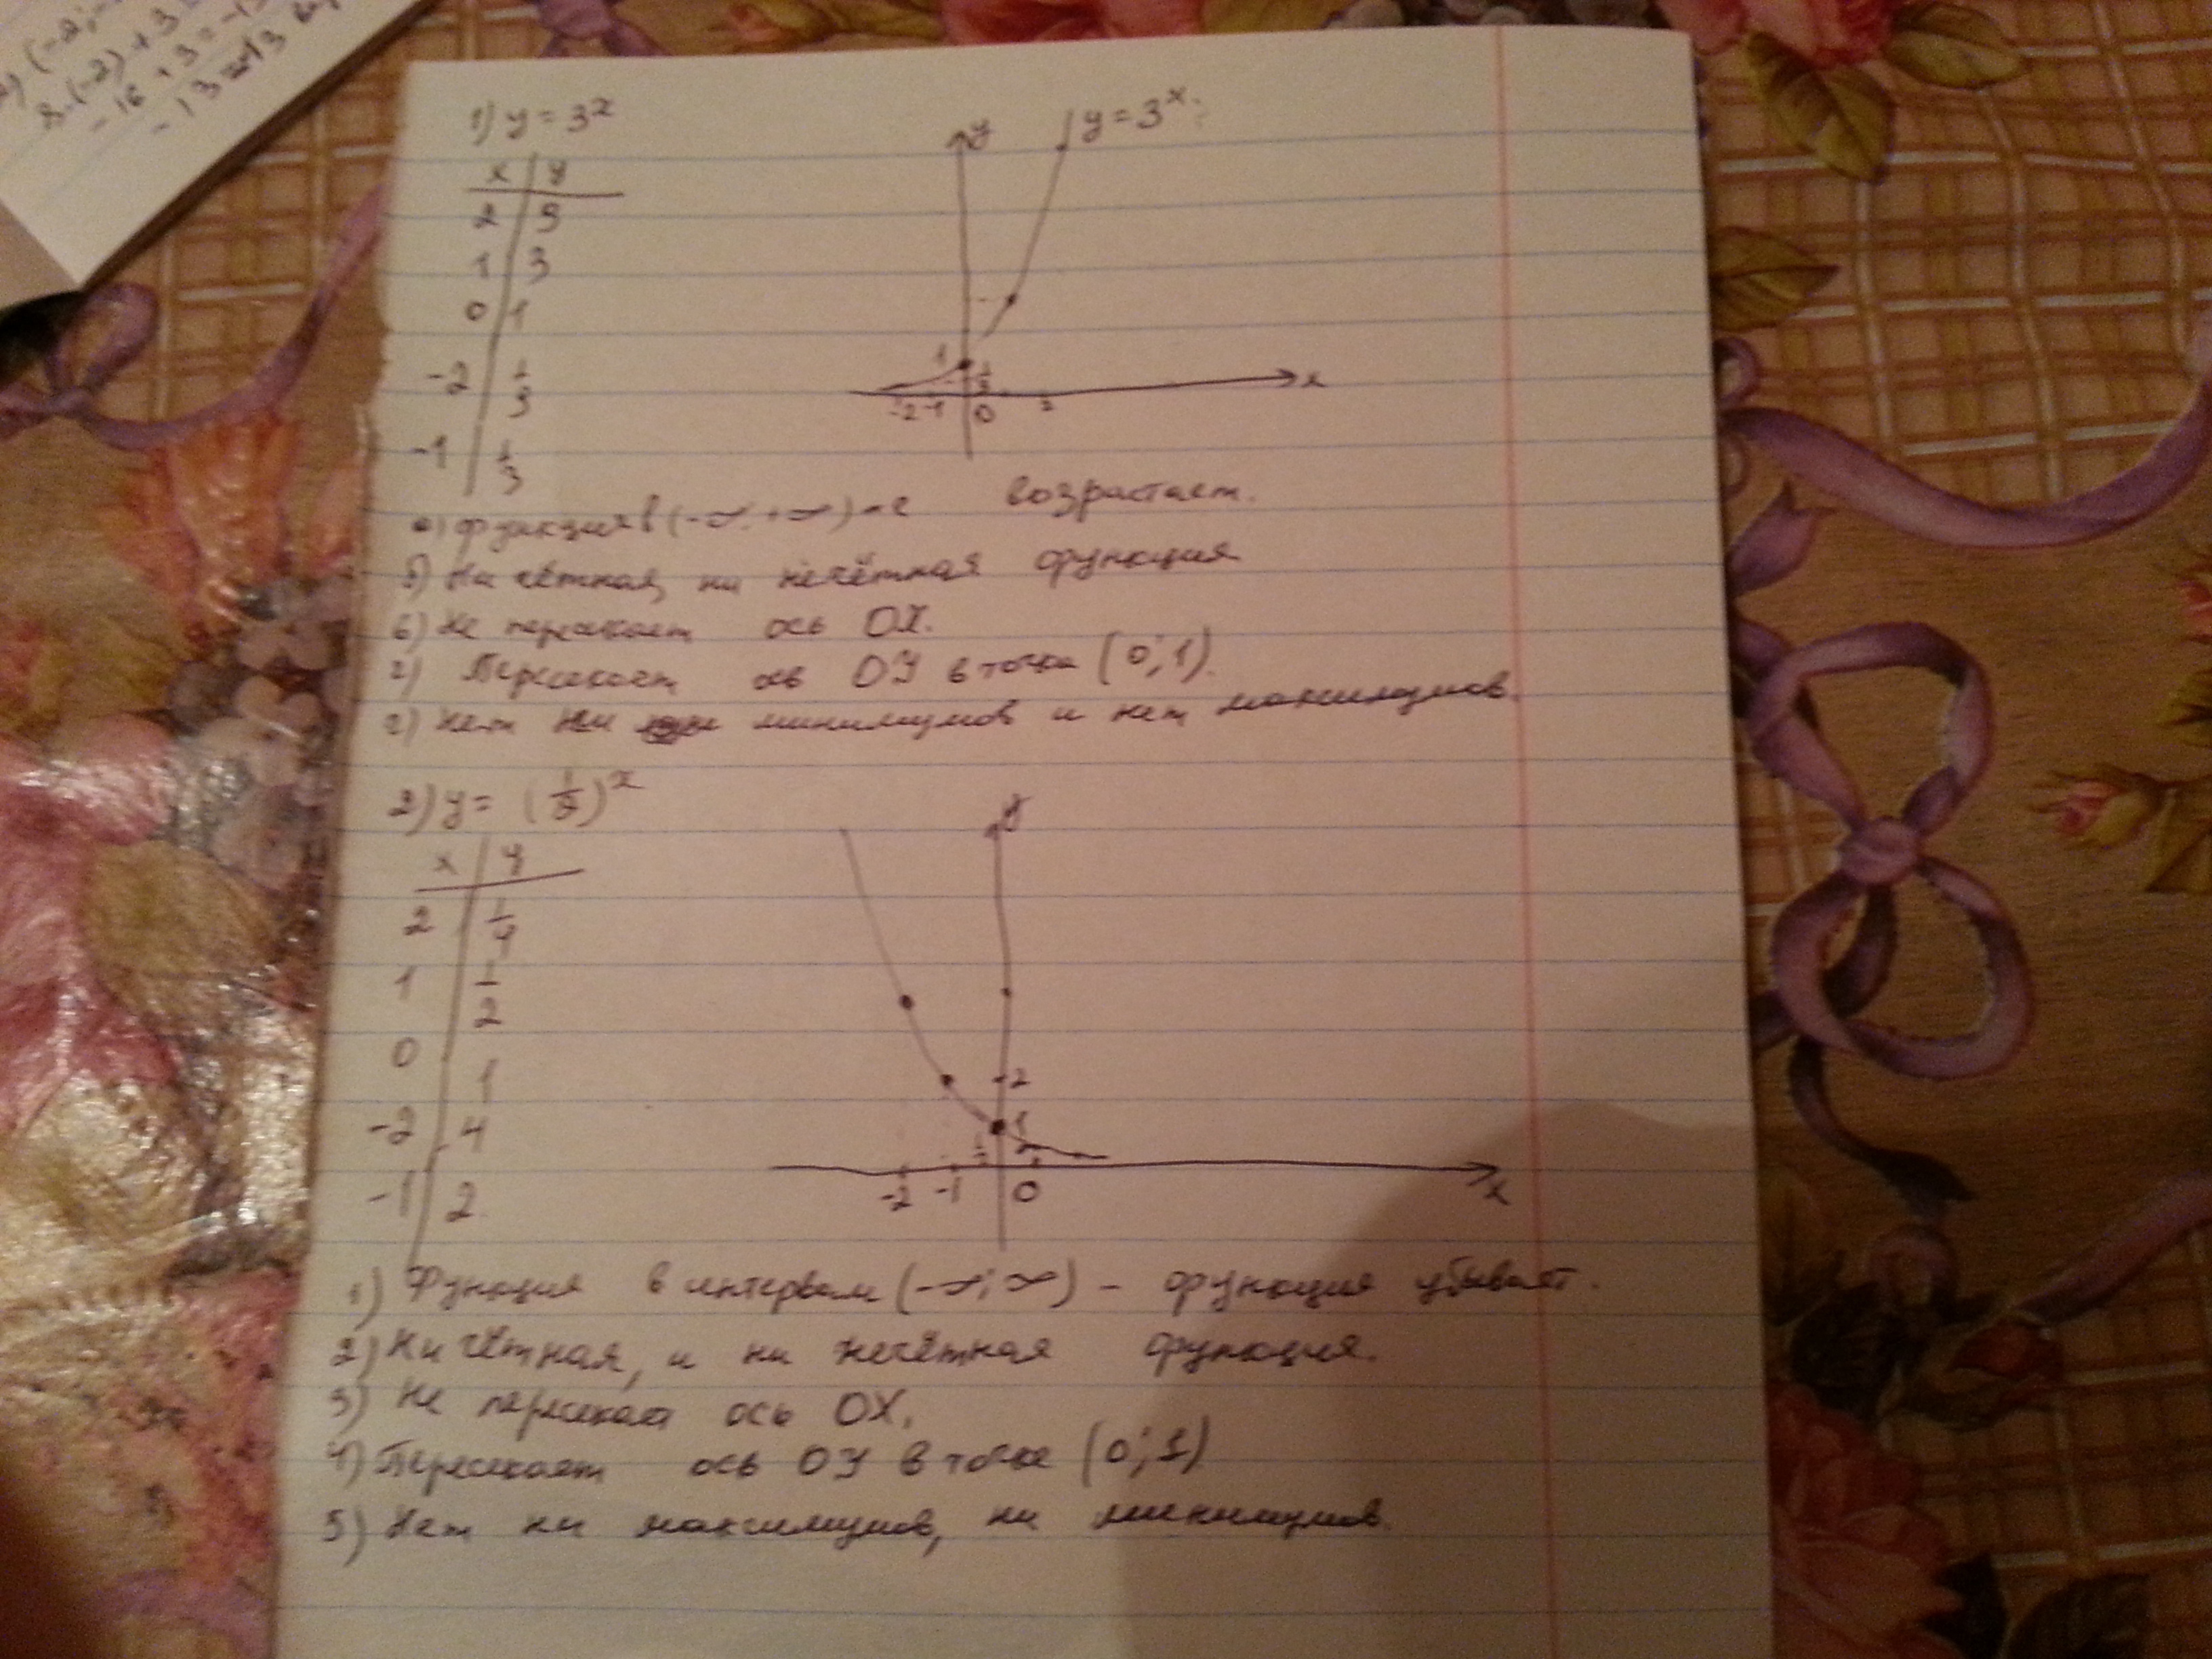 8·(-2)+3
-16+3=-1
-13=-13
1) y = 3^x
x | y
2 | 9
1 | 3
0 | 1
-2 | 1/9
-1 | 1/3
y
y = 3^x
1
1/3
-2 -1 0 2
x
а) функция в (-∞; +∞) - возрастает.
б) Ни чётная, ни нечётная функция
в) Не пересекает ось ОХ.
г) Пересекает ось ОУ в точке (0; 1).
г) Нет ни минимумов и нет максимумов.
2) y = (1/2)^x
x | y
2 | 1/4
1 | 1/2
0 | 1
-2 | 4
-1 | 2
y
2
1
1/2
-2 -1 0
x
1) Функция в интервале (-∞; ∞) - функция убывает.
2) Ни чётная, и ни нечётная функция.
3) Не пересекает ось ОХ.
4) Пересекает ось ОУ в точке (0; 1)
5) Нет ни максимумов, ни минимумов.